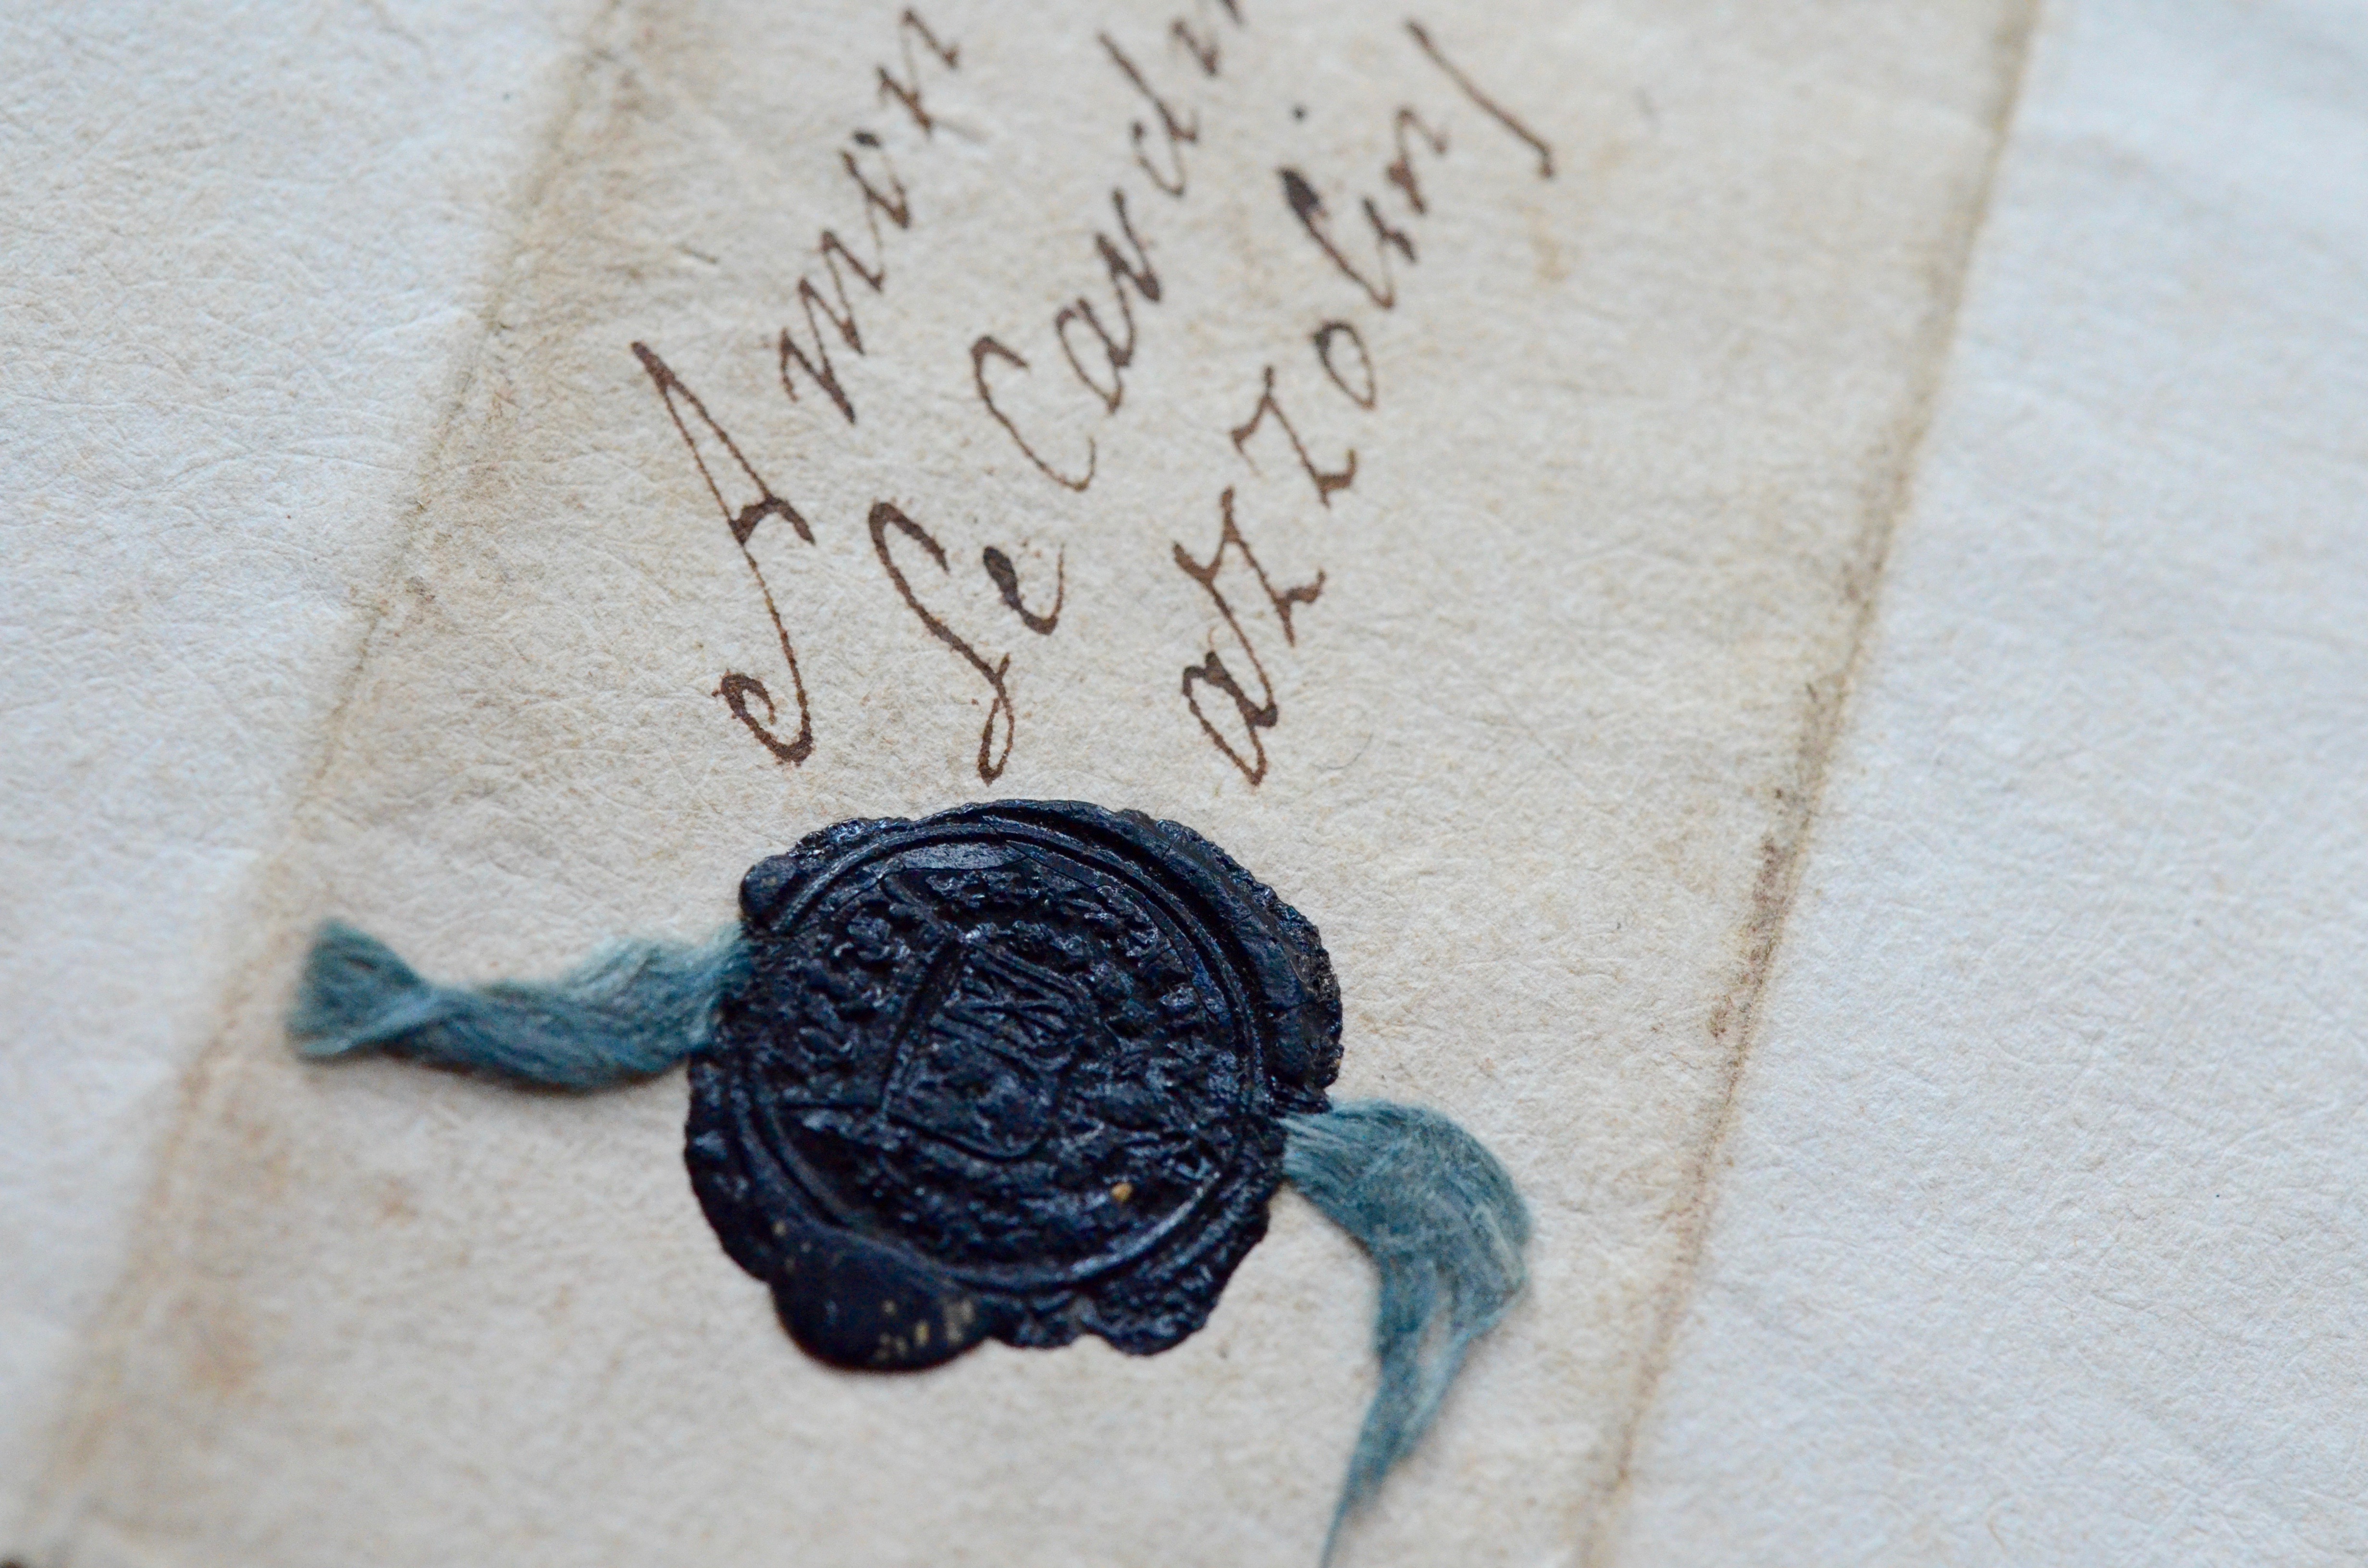 A mon
Le Cardin
azzolin